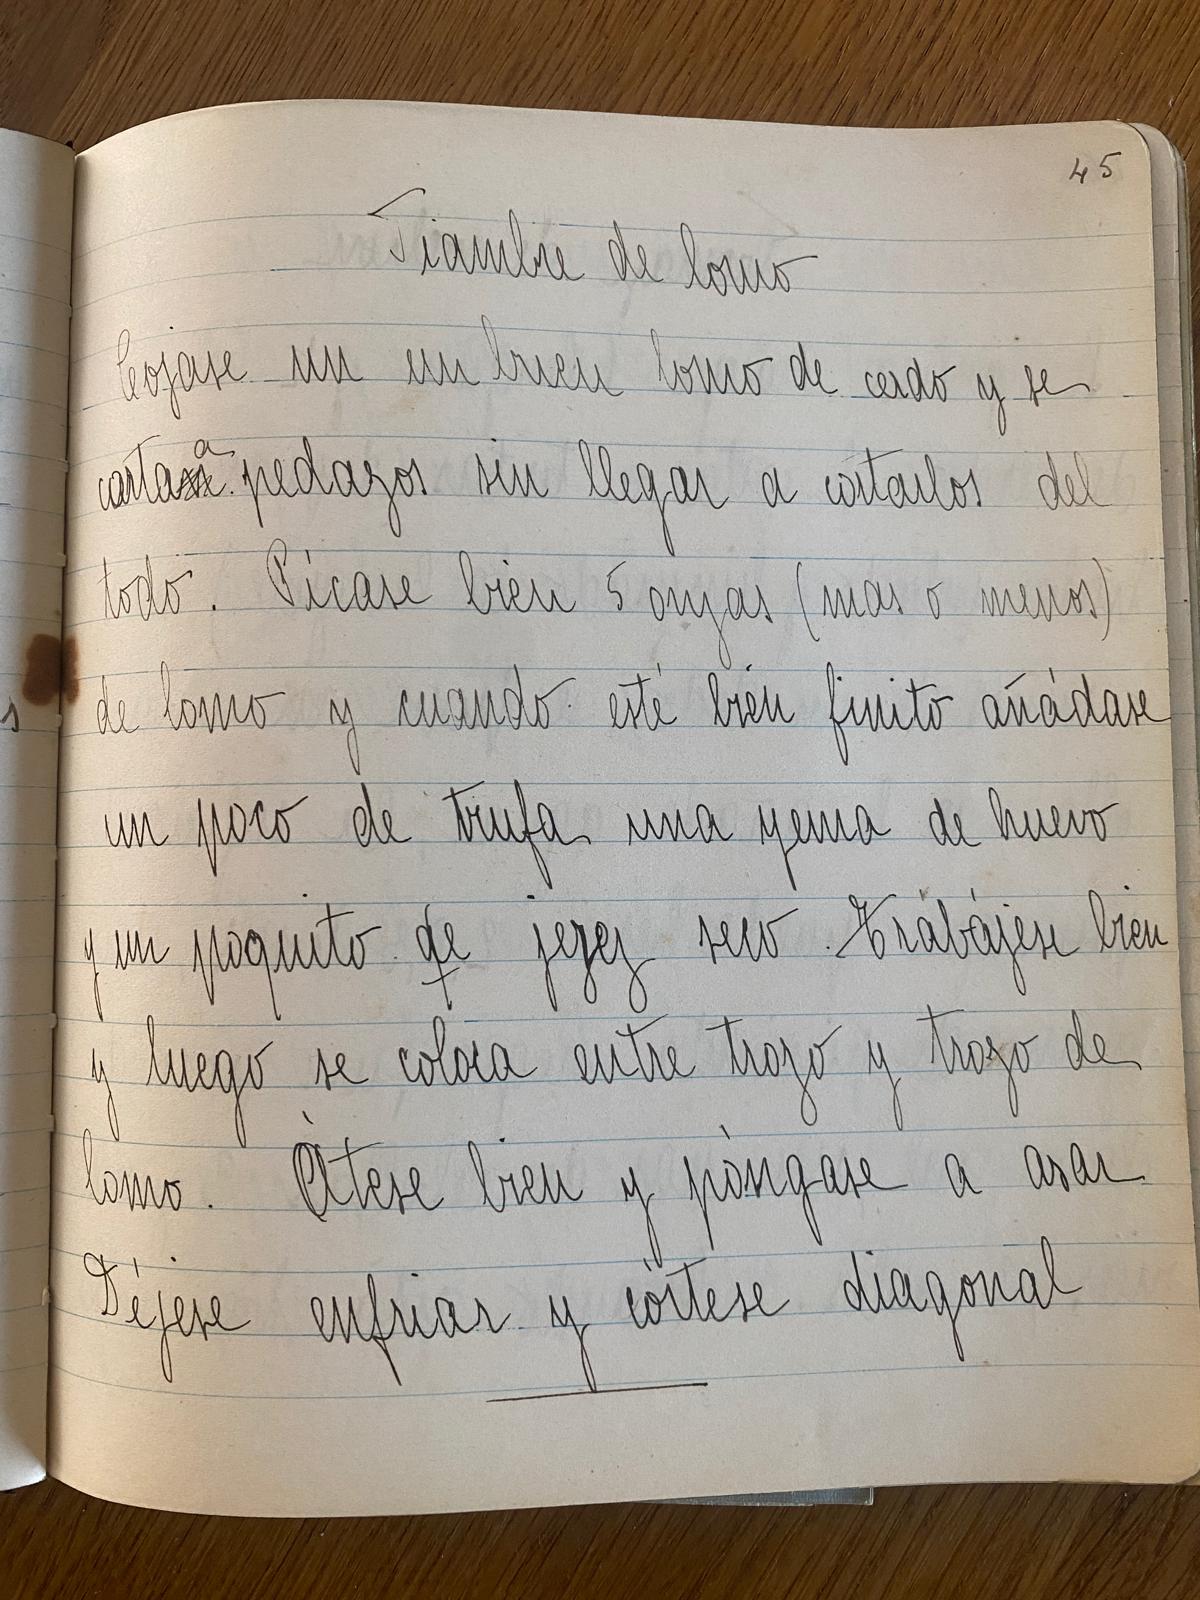 45
Fiambre de lomo
Cojase un un buen lomo de cerdo y se
corta a pedazos sin llegar a cortarlos del
todo. Pícase bien 5 onzas (mas o menos)
de lomo y cuando esté bién finito añádase
un poco de trufa una yema de huevo
y un poquito de jerez seco. Trábájese bien
y luego se coloca entre trozo y trozo de
lomo. Átese bien y póngase a asar
Déjese enfriar y córtese diagonal
s